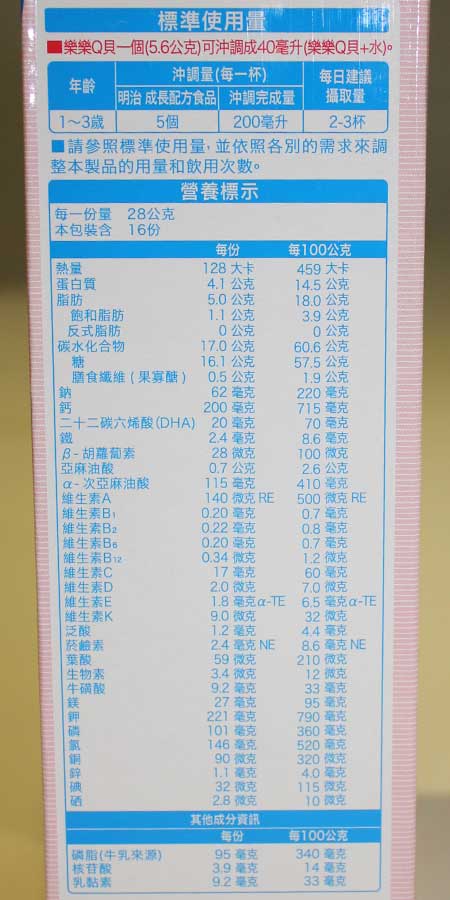 標準使用量
■樂樂Q貝一個(5.6公克)可沖調成40毫升(樂樂Q貝+水)。
年齡 沖調量(每一杯) 每日建議攝取量
明治 成長配方食品 沖調完成量
1～3歲 5個 200毫升 2-3杯
■請參照標準使用量,並依照各別的需求來調
整本製品的用量和飲用次數。
營養標示
每一份量 28公克
本包裝含 16份
每份 每100公克
熱量 128 大卡 459 大卡
蛋白質 4.1 公克 14.5 公克
脂肪 5.0 公克 18.0 公克
飽和脂肪 1.1 公克 3.9 公克
反式脂肪 0 公克 0 公克
碳水化合物 17.0 公克 60.6 公克
糖 16.1 公克 57.5 公克
膳食纖維(果寡醣) 0.5 公克 1.9 公克
鈉 62 毫克 220 毫克
鈣 200 毫克 715 毫克
二十二碳六烯酸(DHA) 20 毫克 70 毫克
鐵 2.4 毫克 8.6 毫克
β-胡蘿蔔素 28 微克 100 微克
亞麻油酸 0.7 公克 2.6 公克
α-次亞麻油酸 115 毫克 410 毫克
維生素A 140 微克 RE 500 微克 RE
維生素B₁ 0.20 毫克 0.7 毫克
維生素B₂ 0.22 毫克 0.8 毫克
維生素B₆ 0.20 毫克 0.7 毫克
維生素B₁₂ 0.34 微克 1.2 微克
維生素C 17 毫克 60 毫克
維生素D 2.0 微克 7.0 微克
維生素E 1.8 毫克α-TE 6.5 毫克α-TE
維生素K 9.0 微克 32 微克
泛酸 1.2 毫克 4.4 毫克
菸鹼素 2.4 毫克 NE 8.6 毫克 NE
葉酸 59 微克 210 微克
生物素 3.4 微克 12 微克
牛磺酸 9.2 毫克 33 毫克
鎂 27 毫克 95 毫克
鉀 221 毫克 790 毫克
磷 101 毫克 360 毫克
氯 146 毫克 520 毫克
銅 90 微克 320 微克
鋅 1.1 毫克 4.0 毫克
碘 32 微克 115 微克
硒 2.8 微克 10 微克
其他成分資訊
每份 每100公克
磷脂(牛乳來源) 95 毫克 340 毫克
核苷酸 3.9 毫克 14 毫克
乳黏素 9.2 毫克 33 毫克